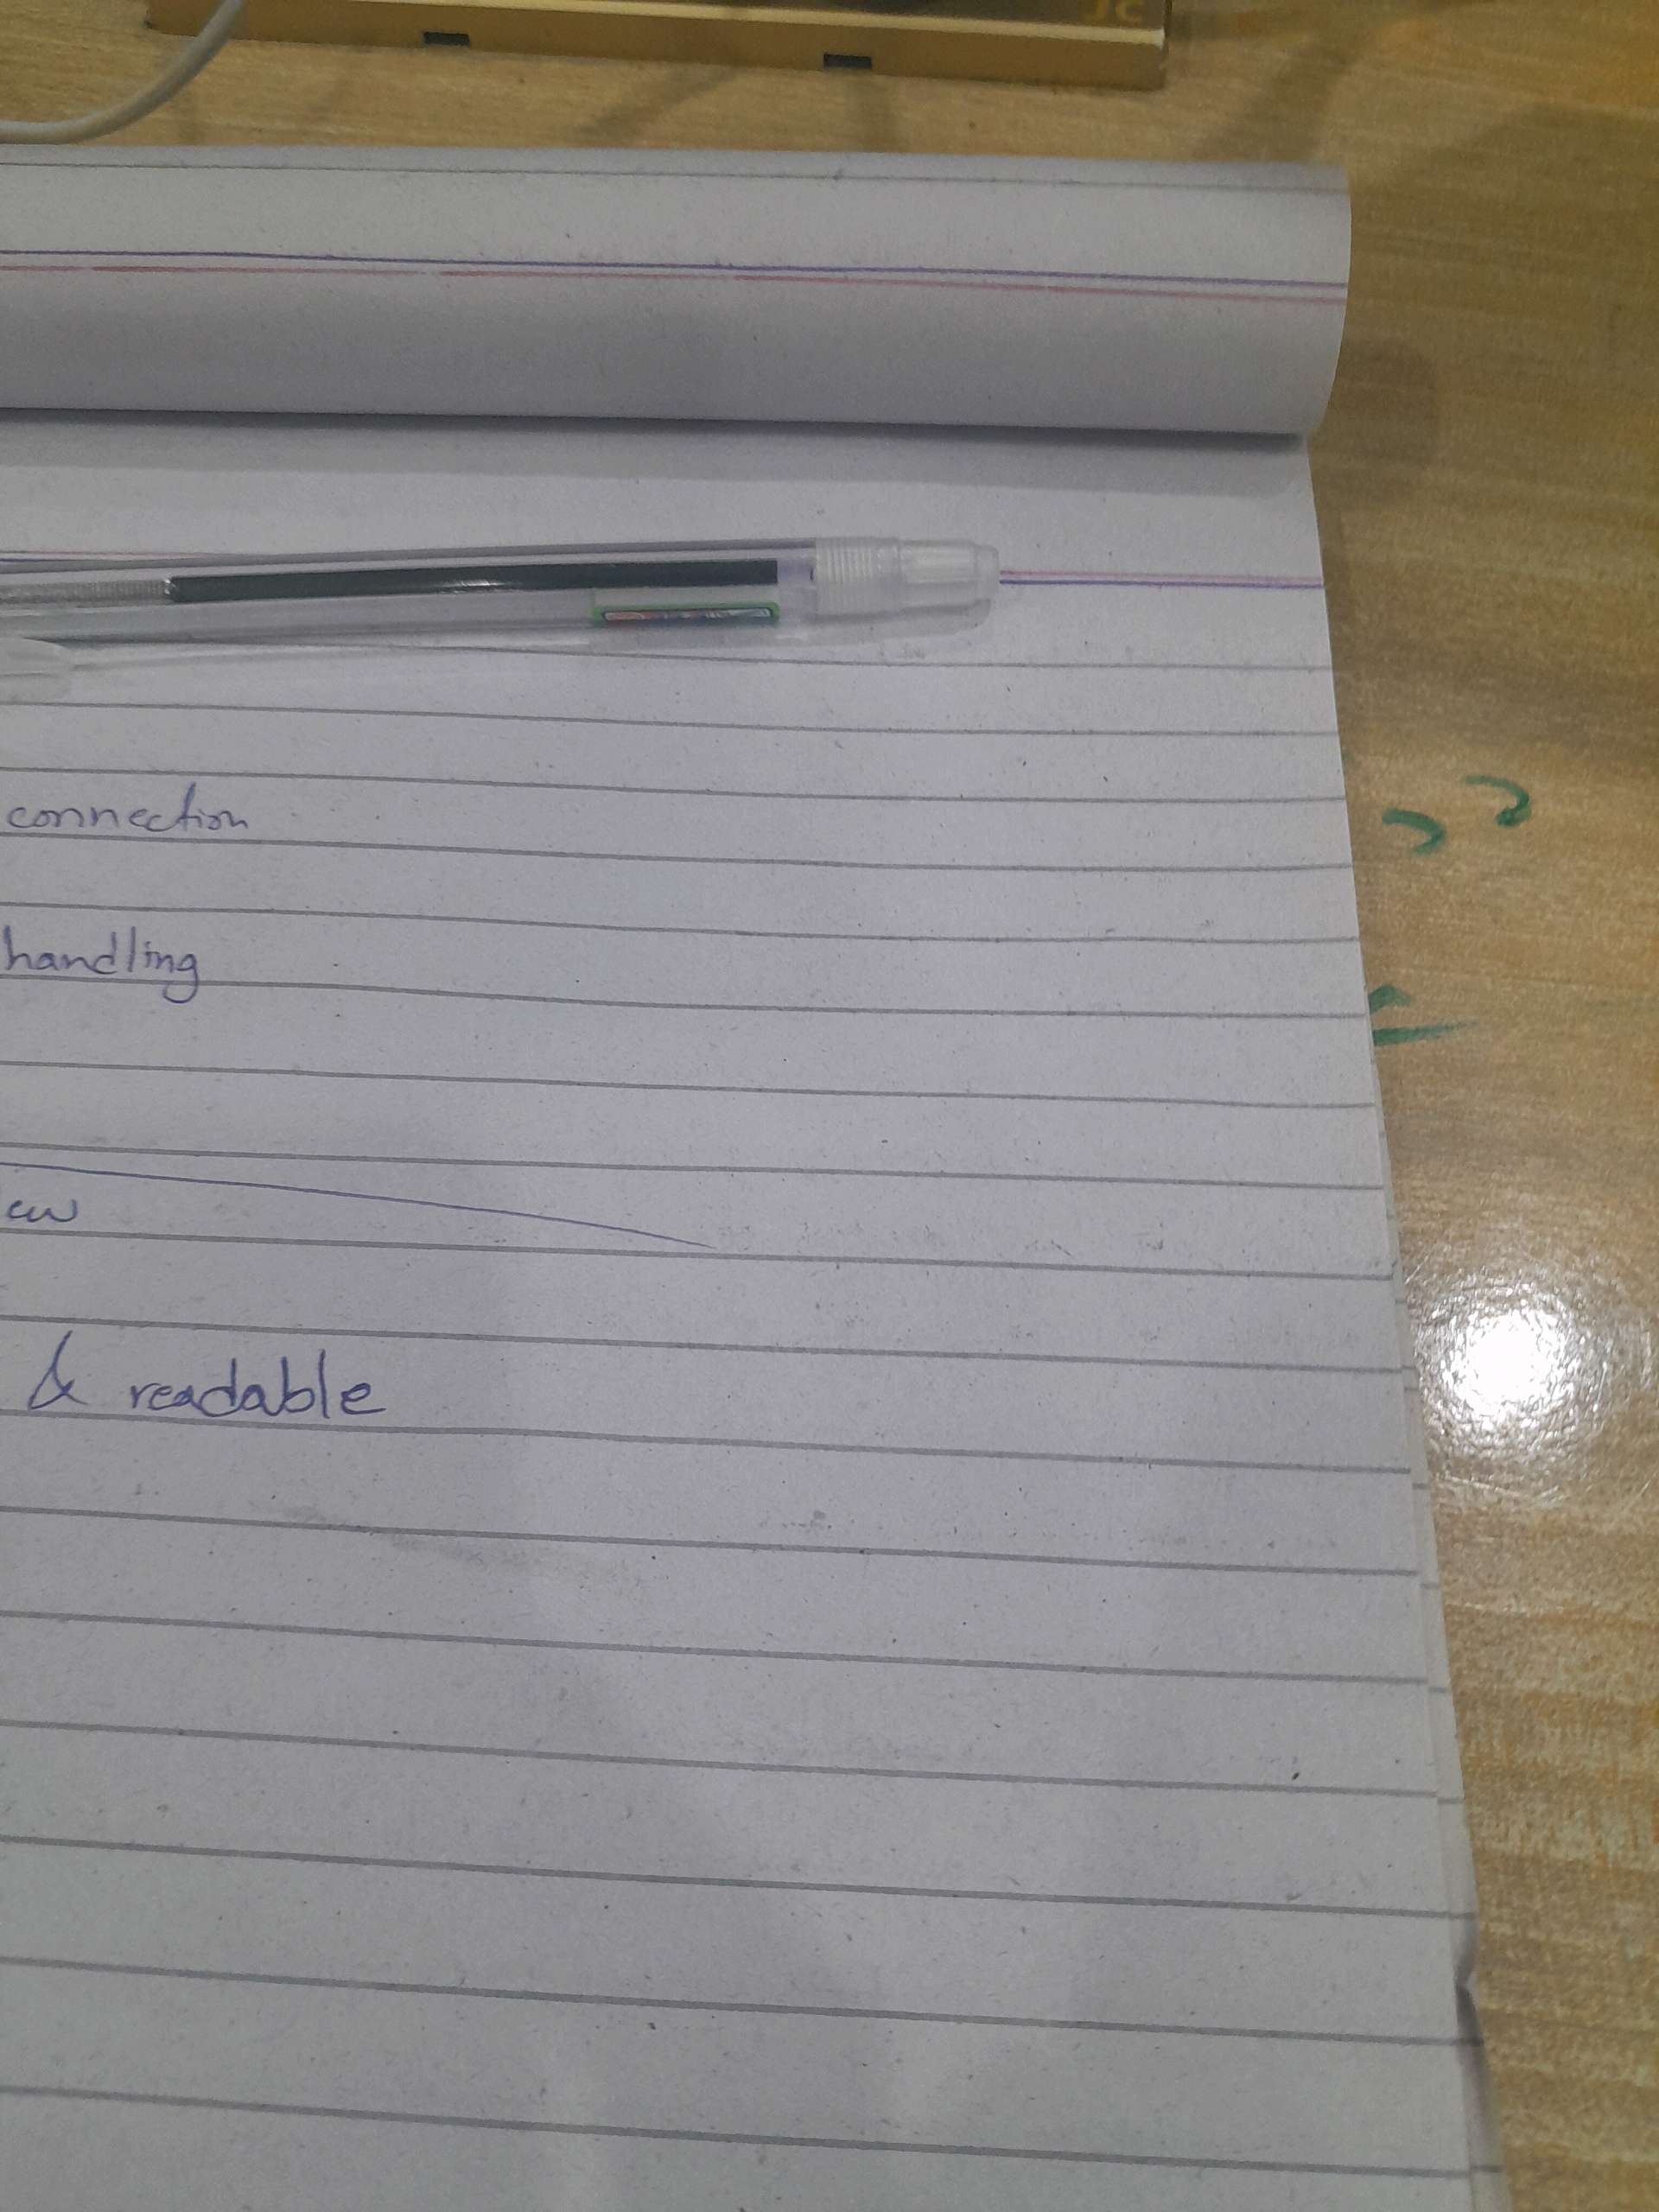 connection
handling
& readable